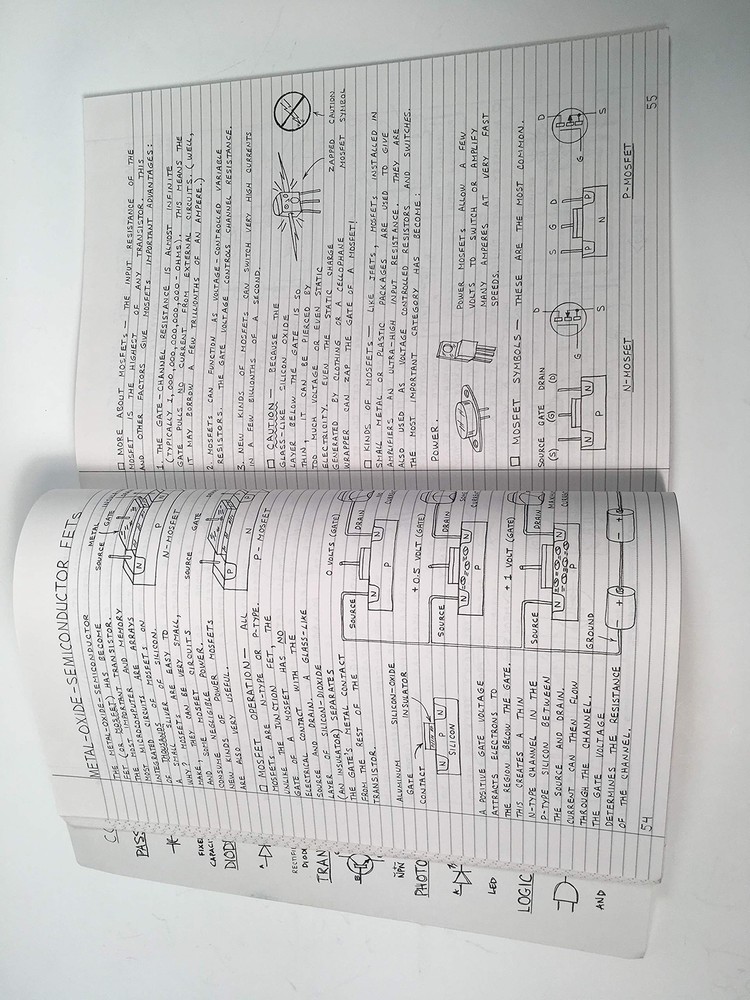 METAL-OXIDE-SEMICONDUCTOR FETS
METAL-OXIDE-SEMICONDUCTOR
THE METAL-OXIDE-SEMICONDUCTOR
FET (OR MOSFET) HAS BECOME
THE MOST IMPORTANT TRANSISTOR.
MOST MICROCOMPUTER AND MEMORY
INTEGRATED CIRCUITS ARE ARRAYS
OF THOUSANDS OF MOSFETS ON
A SMALL SLIVER OF SILICON.
WHY? MOSFETS ARE EASY TO
MAKE, THEY CAN BE VERY SMALL,
AND SOME MOSFET CIRCUITS
CONSUME NEGLIGIBLE POWER.
NEW KINDS OF POWER MOSFETS
ARE ALSO VERY USEFUL.
METAL
GATE
SOURCE
N
P
N-MOSFET
SOURCE
GATE
P
N
P-MOSFET
□ MOSFET OPERATION — ALL
MOSFETS ARE N-TYPE OR P-TYPE.
UNLIKE THE JUNCTION FET, THE
GATE OF A MOSFET HAS NO
ELECTRICAL CONTACT WITH THE
SOURCE AND DRAIN. A GLASS-LIKE
LAYER OF SILICON-DIOXIDE
(AN INSULATOR) SEPARATES
THE GATE'S METAL CONTACT
FROM THE REST OF THE
TRANSISTOR.
ALUMINUM
GATE
CONTACT
SILICON-OXIDE
INSULATOR
N P N
SILICON
A POSITIVE GATE VOLTAGE
ATTRACTS ELECTRONS TO
THE REGION BELOW THE GATE.
THIS CREATES A THIN
N-TYPE CHANNEL IN THE
P-TYPE SILICON BETWEEN
THE SOURCE AND DRAIN.
CURRENT CAN THEN FLOW
THROUGH THE CHANNEL.
THE GATE VOLTAGE
DETERMINES THE RESISTANCE
OF THE CHANNEL.
0 VOLTS (GATE)
SOURCE
DRAIN
N N
P
+0.5 VOLT (GATE)
SOURCE
DRAIN
N N
P
+1 VOLT (GATE)
SOURCE
DRAIN
N N
P
GROUND
- +
- +
54
□ MORE ABOUT MOSFETS — THE INPUT RESISTANCE OF THE
MOSFET IS THE HIGHEST OF ANY TRANSISTOR. THIS
AND OTHER FACTORS GIVE MOSFETS IMPORTANT ADVANTAGES:
1. THE GATE-CHANNEL RESISTANCE IS ALMOST INFINITE
(TYPICALLY 1,000,000,000,000,000-OHMS). THIS MEANS THE
GATE PULLS NO CURRENT FROM EXTERNAL CIRCUITS. (WELL,
IT MAY BORROW A FEW TRILLIONTHS OF AN AMPERE.)
2. MOSFETS CAN FUNCTION AS VOLTAGE-CONTROLLED VARIABLE
RESISTORS. THE GATE VOLTAGE CONTROLS CHANNEL RESISTANCE.
3. NEW KINDS OF MOSFETS CAN SWITCH VERY HIGH CURRENTS
IN A FEW BILLIONTHS OF A SECOND.
□ CAUTION — BECAUSE THE
GLASS-LIKE SILICON OXIDE
LAYER BELOW THE GATE IS SO
THIN, IT CAN BE PIERCED BY
TOO MUCH VOLTAGE OR EVEN STATIC
ELECTRICITY. EVEN THE STATIC CHARGE
GENERATED BY CLOTHING OR A CELLOPHANE
WRAPPER CAN ZAP THE GATE OF A MOSFET!
ZAPPED
MOSFET
CAUTION
SYMBOL
□ KINDS OF MOSFETS — LIKE JFETS, MOSFETS INSTALLED IN
SMALL METAL OR PLASTIC PACKAGES ARE USED TO GIVE
AMPLIFIERS AN ULTRA-HIGH INPUT RESISTANCE. THEY ARE
ALSO USED AS VOLTAGE CONTROLLED RESISTORS AND SWITCHES.
THE MOST IMPORTANT CATEGORY HAS BECOME:
POWER.
POWER MOSFETS ALLOW A FEW
VOLTS TO SWITCH OR AMPLIFY
MANY AMPERES AT VERY FAST
SPEEDS.
□ MOSFET SYMBOLS — THESE ARE THE MOST COMMON.
SOURCE GATE DRAIN
(S) (G) (D)
N N
P
G
D
S
N-MOSFET
S G D
P P
N
G
D
S
P-MOSFET
55
PASS
FIXE
CAPACI
DIOD
RECTIFI
DIOD
TRAN
NPN
PHOTO
LED
LOGIC
AND